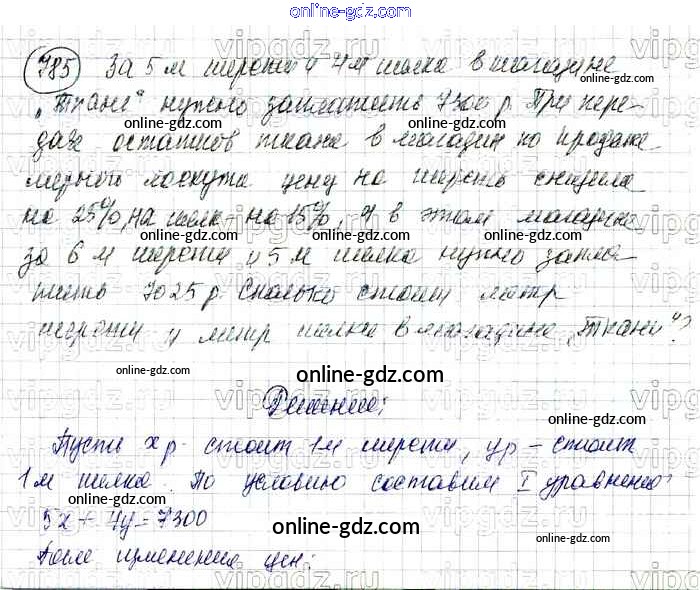 online-gdz.com
785 За 5 м шерсти и 4 м шелка в магазине
„Ткани“ нужно заплатить 7300 р. При пере-
даче остатков ткани в магазин по продаже
мерного лоскута цену на шерсть снизили
на 25%, на шелк - на 15%, и в этом магазине
за 6 м шерсти и 5 м шелка нужно запла-
тить 7025 р. Сколько стоит метр
шерсти и метр шелка в магазине „Ткани“?
Решение:
Пусть x р. стоит 1 м шерсти, y р - стоит
1 м шелка. По условию составим I уравнение:
5x + 4y = 7300
После изменения цен:
online-gdz.com